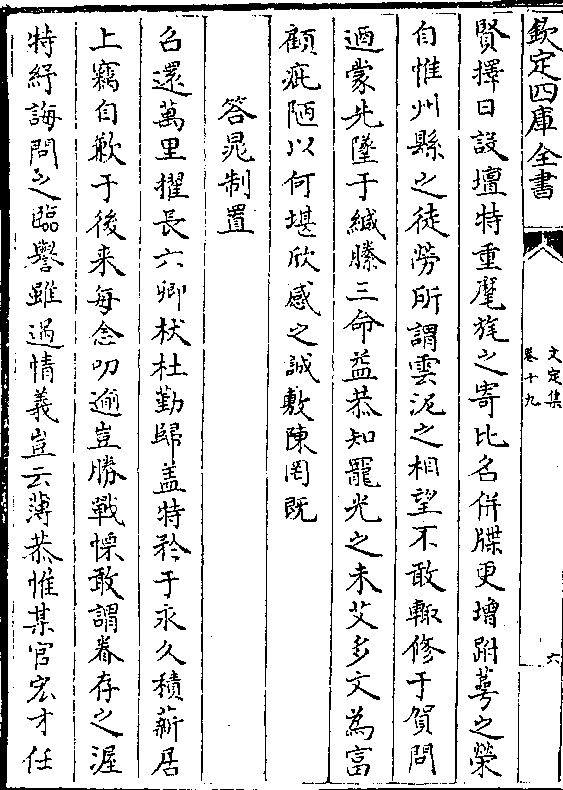 欽定四庫全書
文定集
卷十九
六
賢擇日設壇特重麾旄之寄比名併牒更增跗萼之榮
自惟州縣之徒勞所謂雲泥之相望不敢輙修于賀問
迺蒙先墜于緘縢三命益恭知寵光之未艾多文為富
顧疵陋以何堪欣感之誠敷陳罔既
答晁制置
召還萬里擢長六卿杕杜勤歸盖特矜于永久積薪居
上竊自歉于後来每念叨逾豈勝戰慄敢謂眷存之渥
特紆誨問之臨譽雖過情義豈云薄恭惟某官宏才任